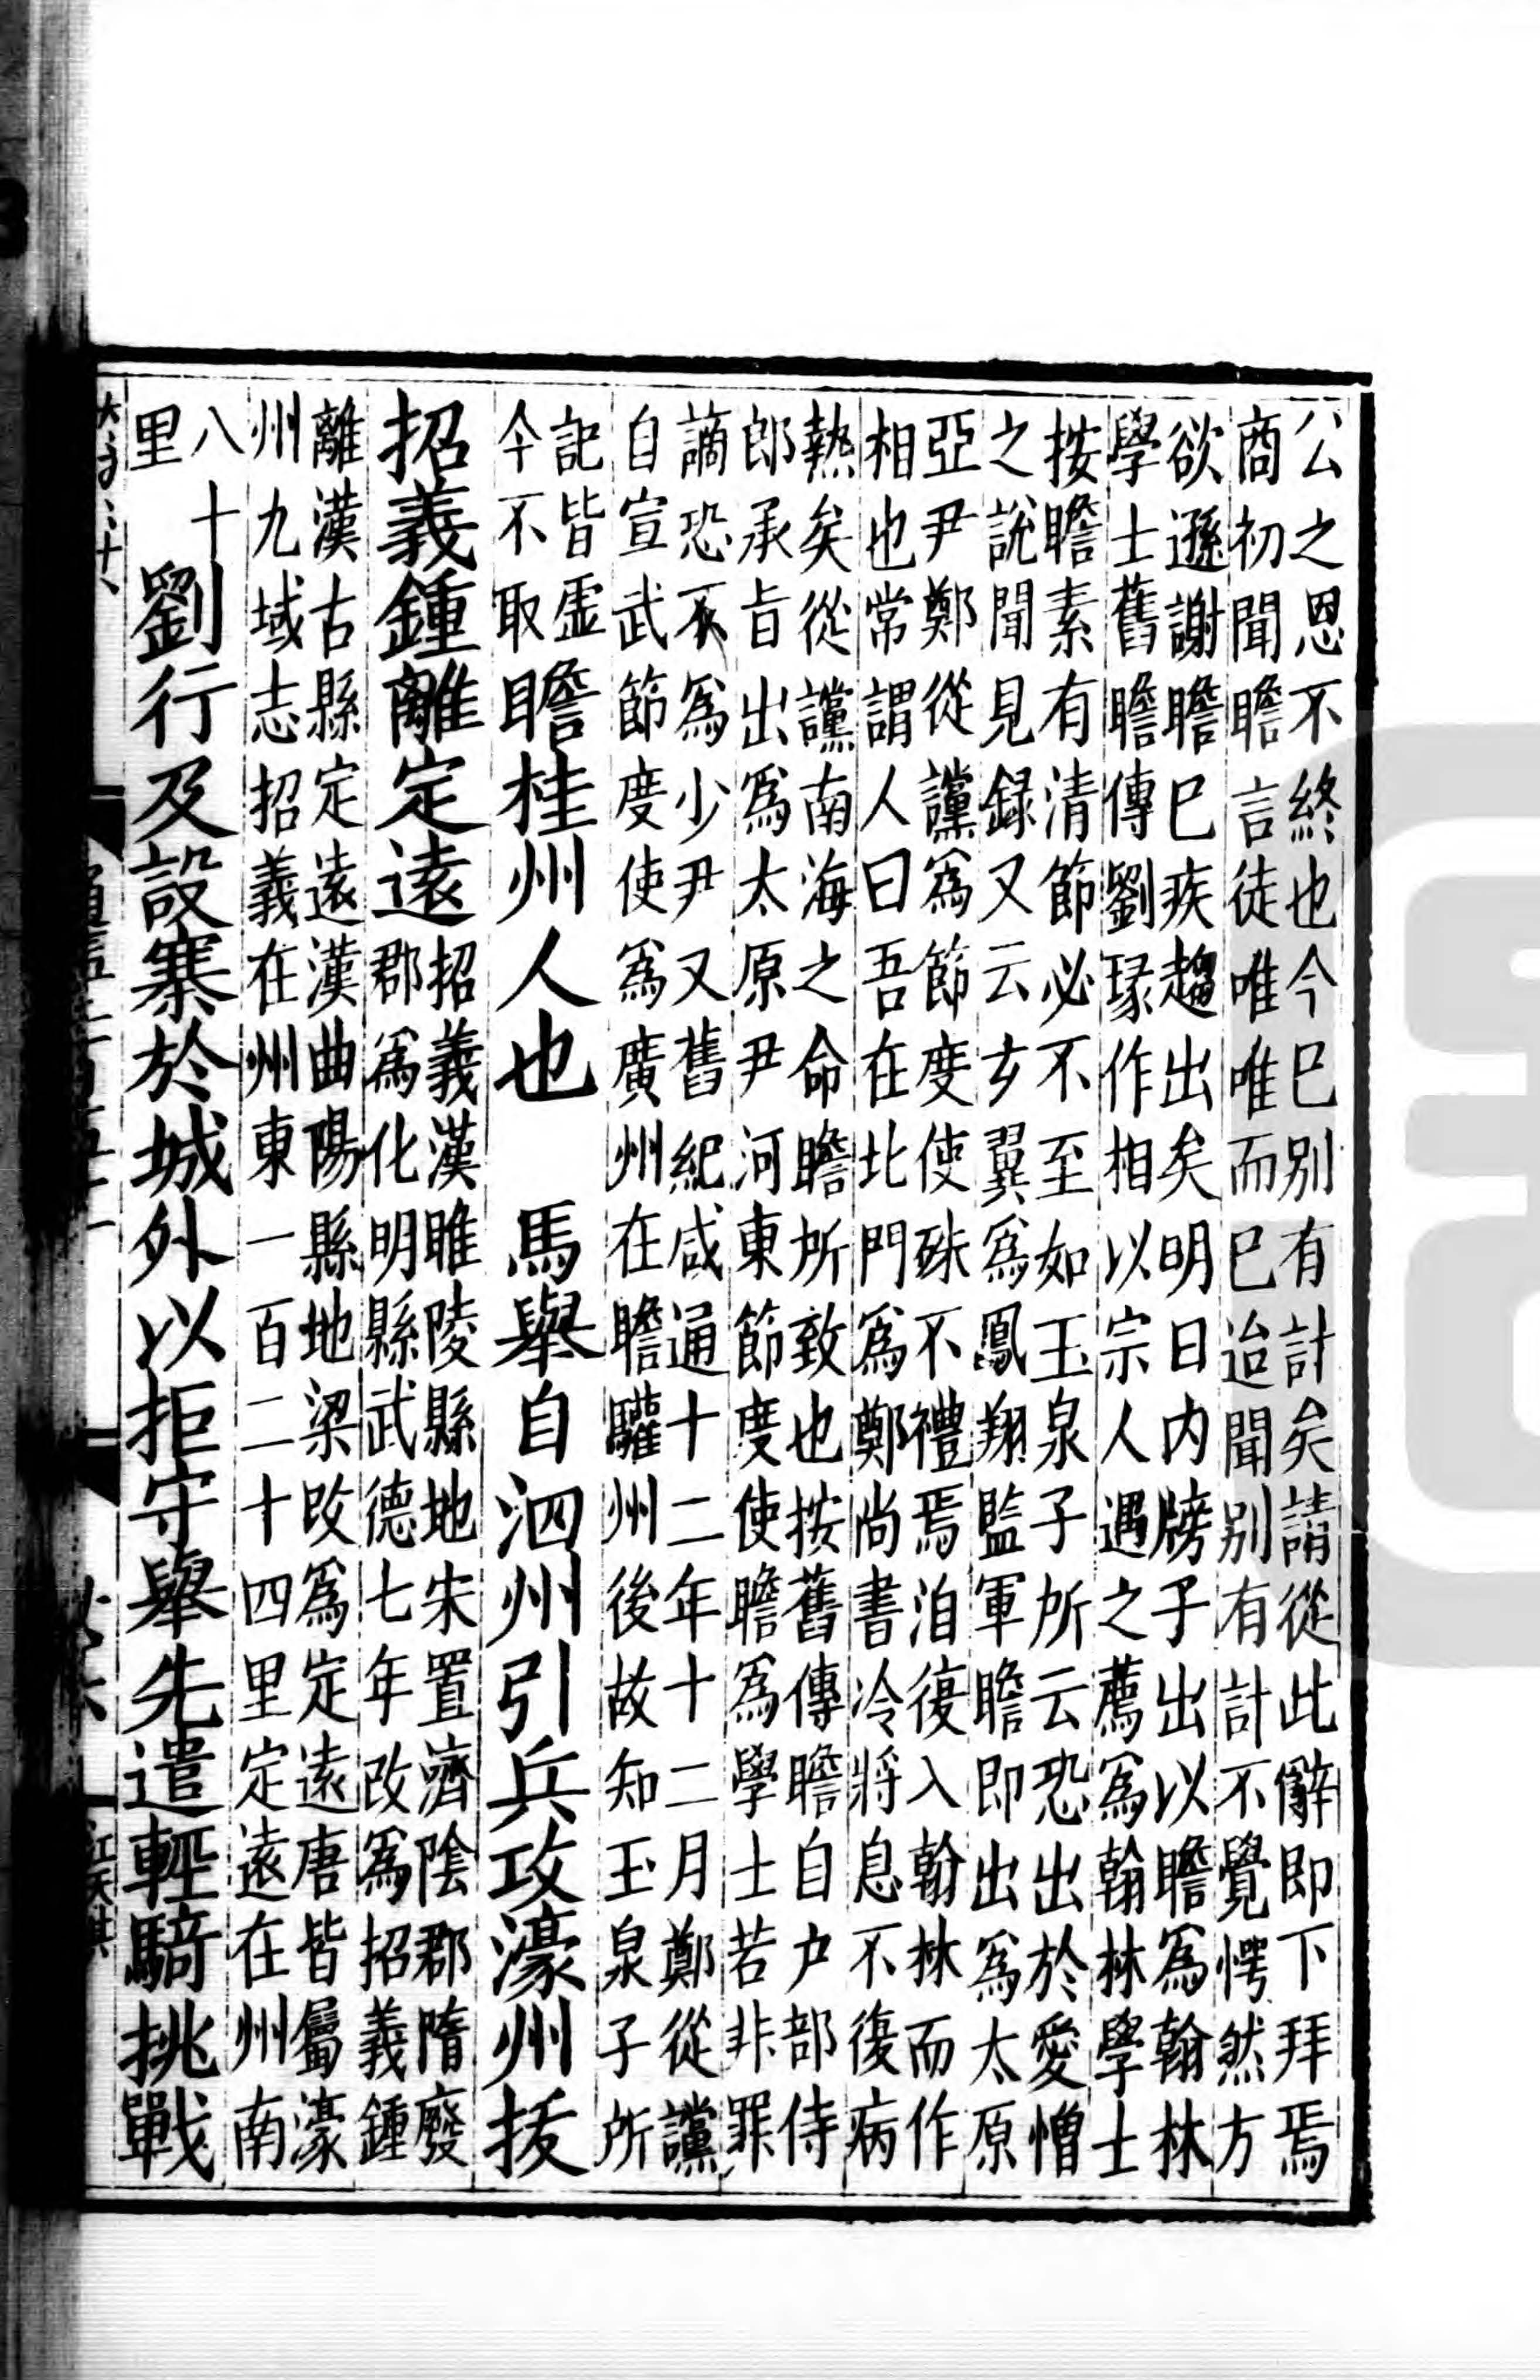 公之恩不終也今巳別有計矣請從此辭即下拜焉
商初聞瞻言徒唯唯而巳迨聞別有計不覺愕然方
欲遜謝瞻巳疾趨出矣明日内牓子出以瞻爲翰林
學士舊瞻傳劉瑑作相以宗人遇之薦爲翰林學士
按瞻素有清節必不至如玉泉子所云恐出於愛憎
之說聞見録又云玄翼爲鳳翔監軍瞻即出爲太原
亞尹鄭從讜爲節度使殊不禮焉洎復入翰林而作
相也常謂人曰吾在北門爲鄭尚書冷將息不復病
熱矣從讜南海之命瞻所致也按舊傳瞻自户部侍
郎承旨出爲太原尹河東節度使瞻爲學士若非罪
謫恐不爲少尹又舊紀咸通十二年十二月鄭從讜
自宣武節度使爲廣州在瞻驩州後故知玉泉子所
記皆虛
今不取
瞻桂州人也　馬舉自泗州引兵攻濠州拔
招義鍾離定遠
招義漢睢陵縣地宋置濟陰郡隋廢
郡爲化明縣武德七年改爲招義鍾
離漢古縣定遠漢曲陽縣地梁改爲定遠唐皆屬濠
州九域志招義在州東一百二十四里定遠在州南
八十
里
劉行及設寨於城外以拒守舉先遣輕騎挑戰